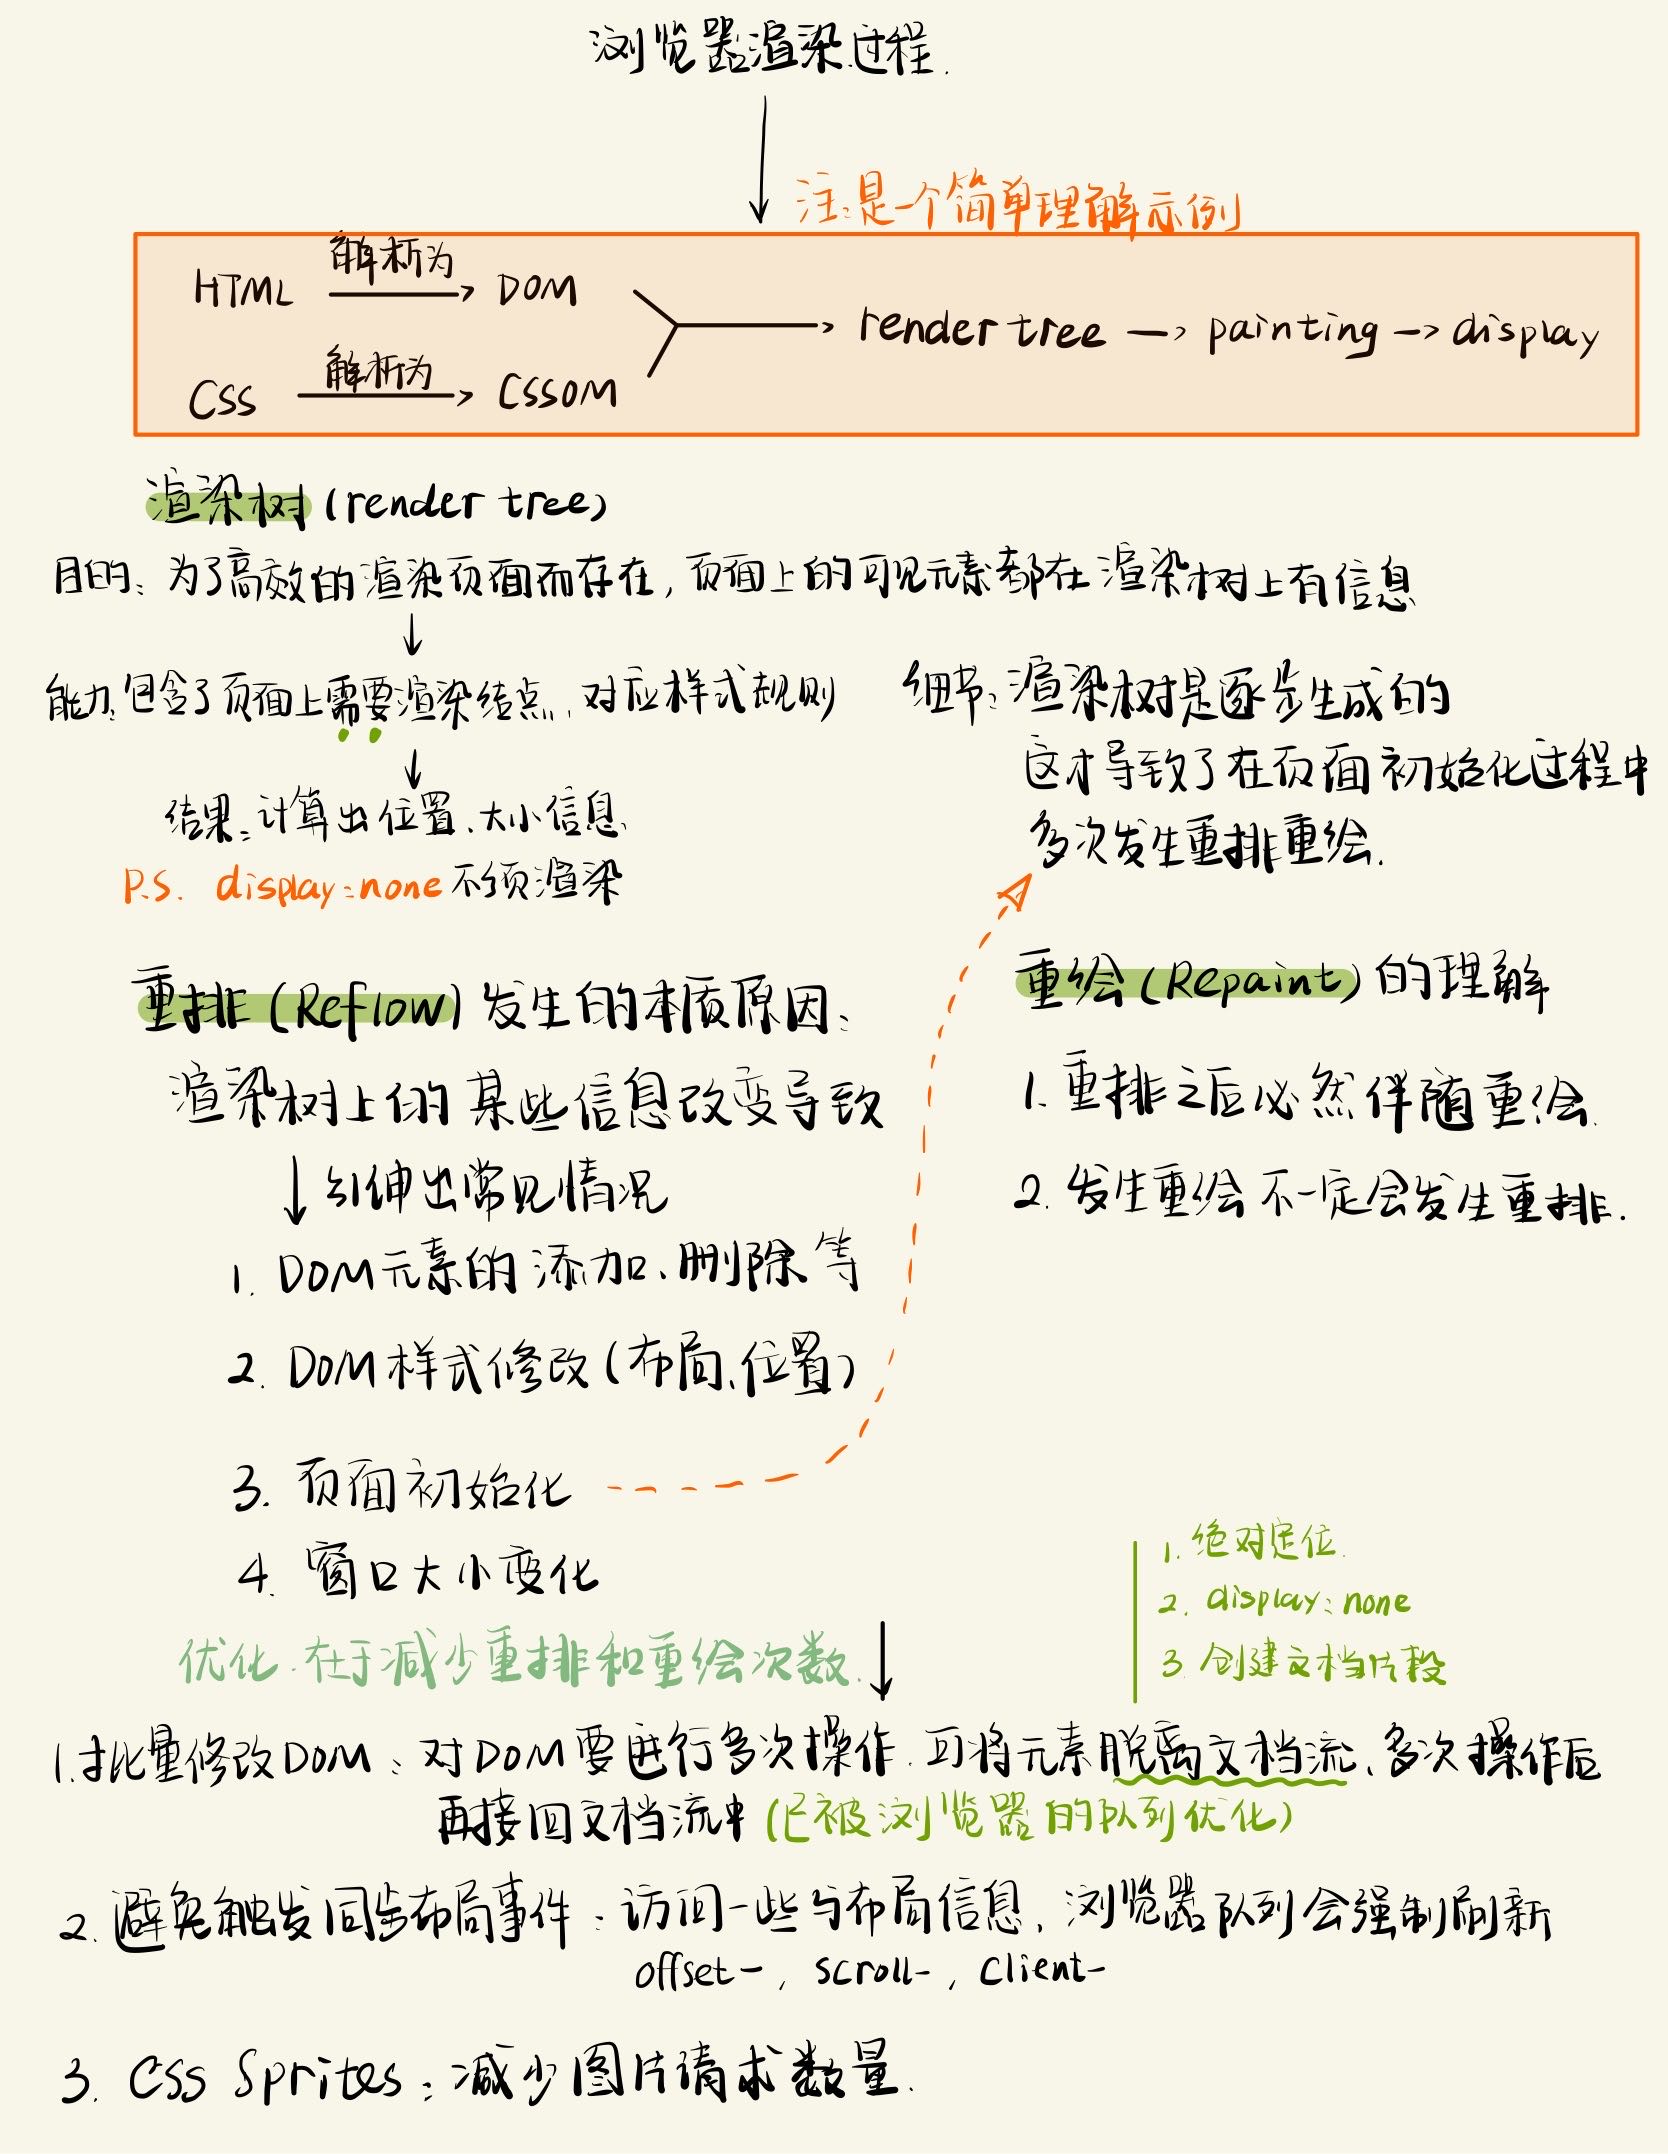 浏览器渲染过程.
注:是一个简单理解示例
HTML 解析为 DOM
render tree → painting → display
CSS 解析为 CSSOM
渲染树 (render tree)
目的: 为了高效的渲染页面而存在, 页面上的可见元素都在渲染树上有信息
能力: 包含了页面上需要渲染结点、对应样式规则
结果: 计算出位置、大小信息
P.S. display:none 不须渲染
细节: 渲染树是逐步生成的
这才导致了在页面初始化过程中
多次发生重排重绘.
重排 (Reflow) 发生的本质原因:
渲染树上的某些信息改变导致
↓ 引伸出常见情况
1. DOM元素的添加、删除等
2. DOM样式修改 (布局、位置)
3. 页面初始化
4. 窗口大小变化
重绘 (Repaint) 的理解
1. 重排之后必然伴随重绘.
2. 发生重绘不一定会发生重排.
优化:在于减少重排和重绘次数.
1. 绝对定位.
2. display:none
3. 创建文档片段
1.批量修改DOM: 对DOM要进行多次操作、可将元素脱离文档流、多次操作后
再接回文档流中 (已被浏览器的队列优化)
2. 避免触发同步布局事件: 访问一些与布局信息, 浏览器队列会强制刷新
offset-, scroll-, client-
3. CSS Sprites: 减少图片请求数量.